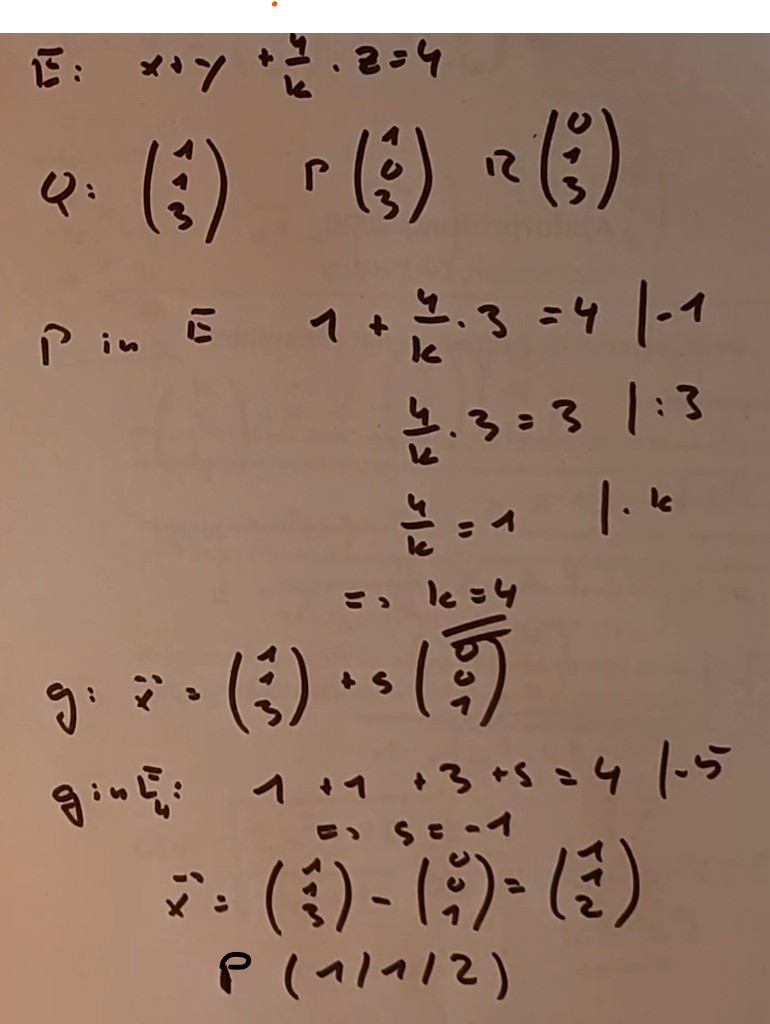 E: x+y + 4/k · z = 4
Q: (1 1 3) P (1 0 3) R (0 1 3)
P in E 1 + 4/k · 3 = 4 |-1
4/k · 3 = 3 |:3
4/k = 1 |· k
=> k = 4
g: x⃗ = (1 1 3) + s (0 0 1)
g in E₄: 1 + 1 + 3 + s = 4 |-5
=> s = -1
x⃗ = (1 1 3) - (0 0 1) = (1 1 2)
P (1/1/2)